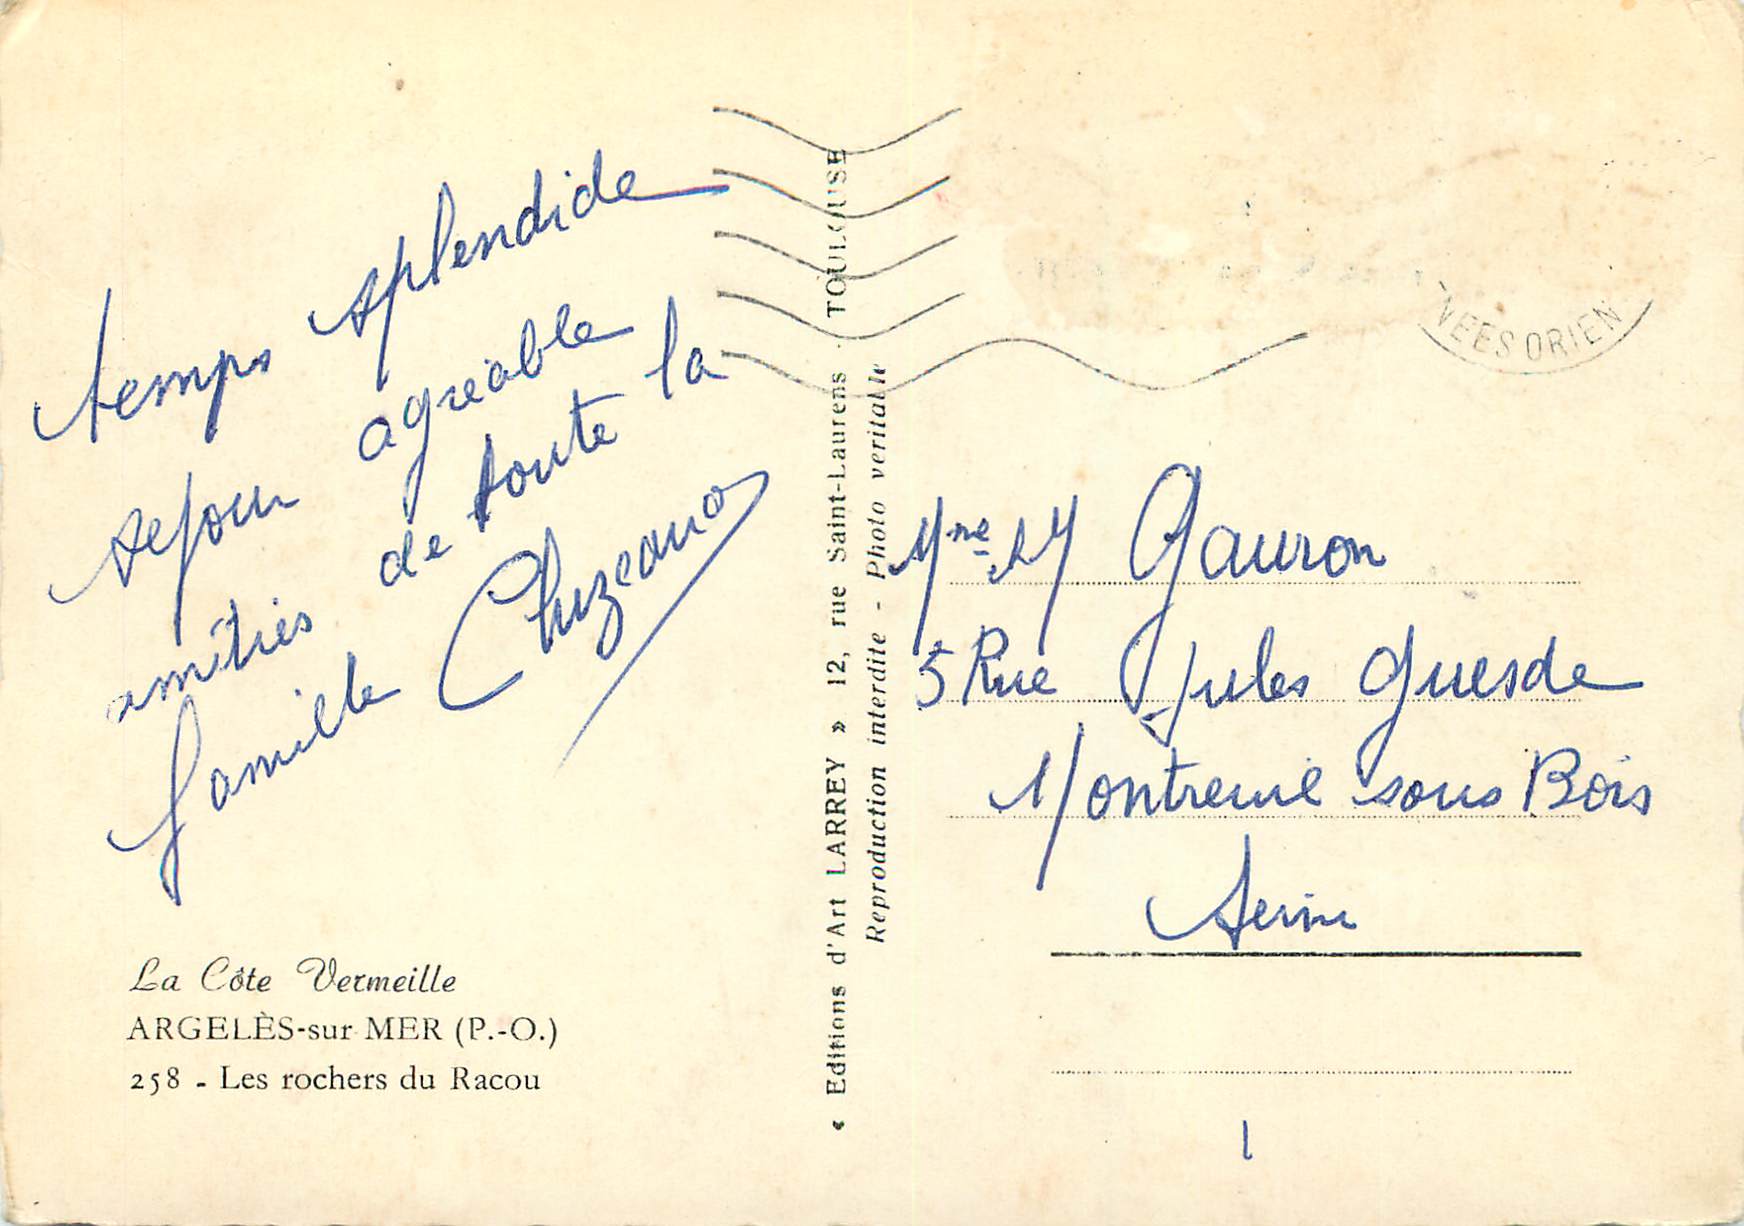 temps splendide
sejour agréable
amitiés de toute la
famille
La Côte Vermeille
ARGELÈS-sur-MER (P.-O.)
258 - Les rochers du Racou
« Editions d'Art LARREY » 12, rue Saint-Laurens - TOULOUSE
Reproduction interdite - Photo veritable
NEES ORIEN
Mme M Gauron
5 Rue Jules Guesde
Montreuil sous Bois
Seine